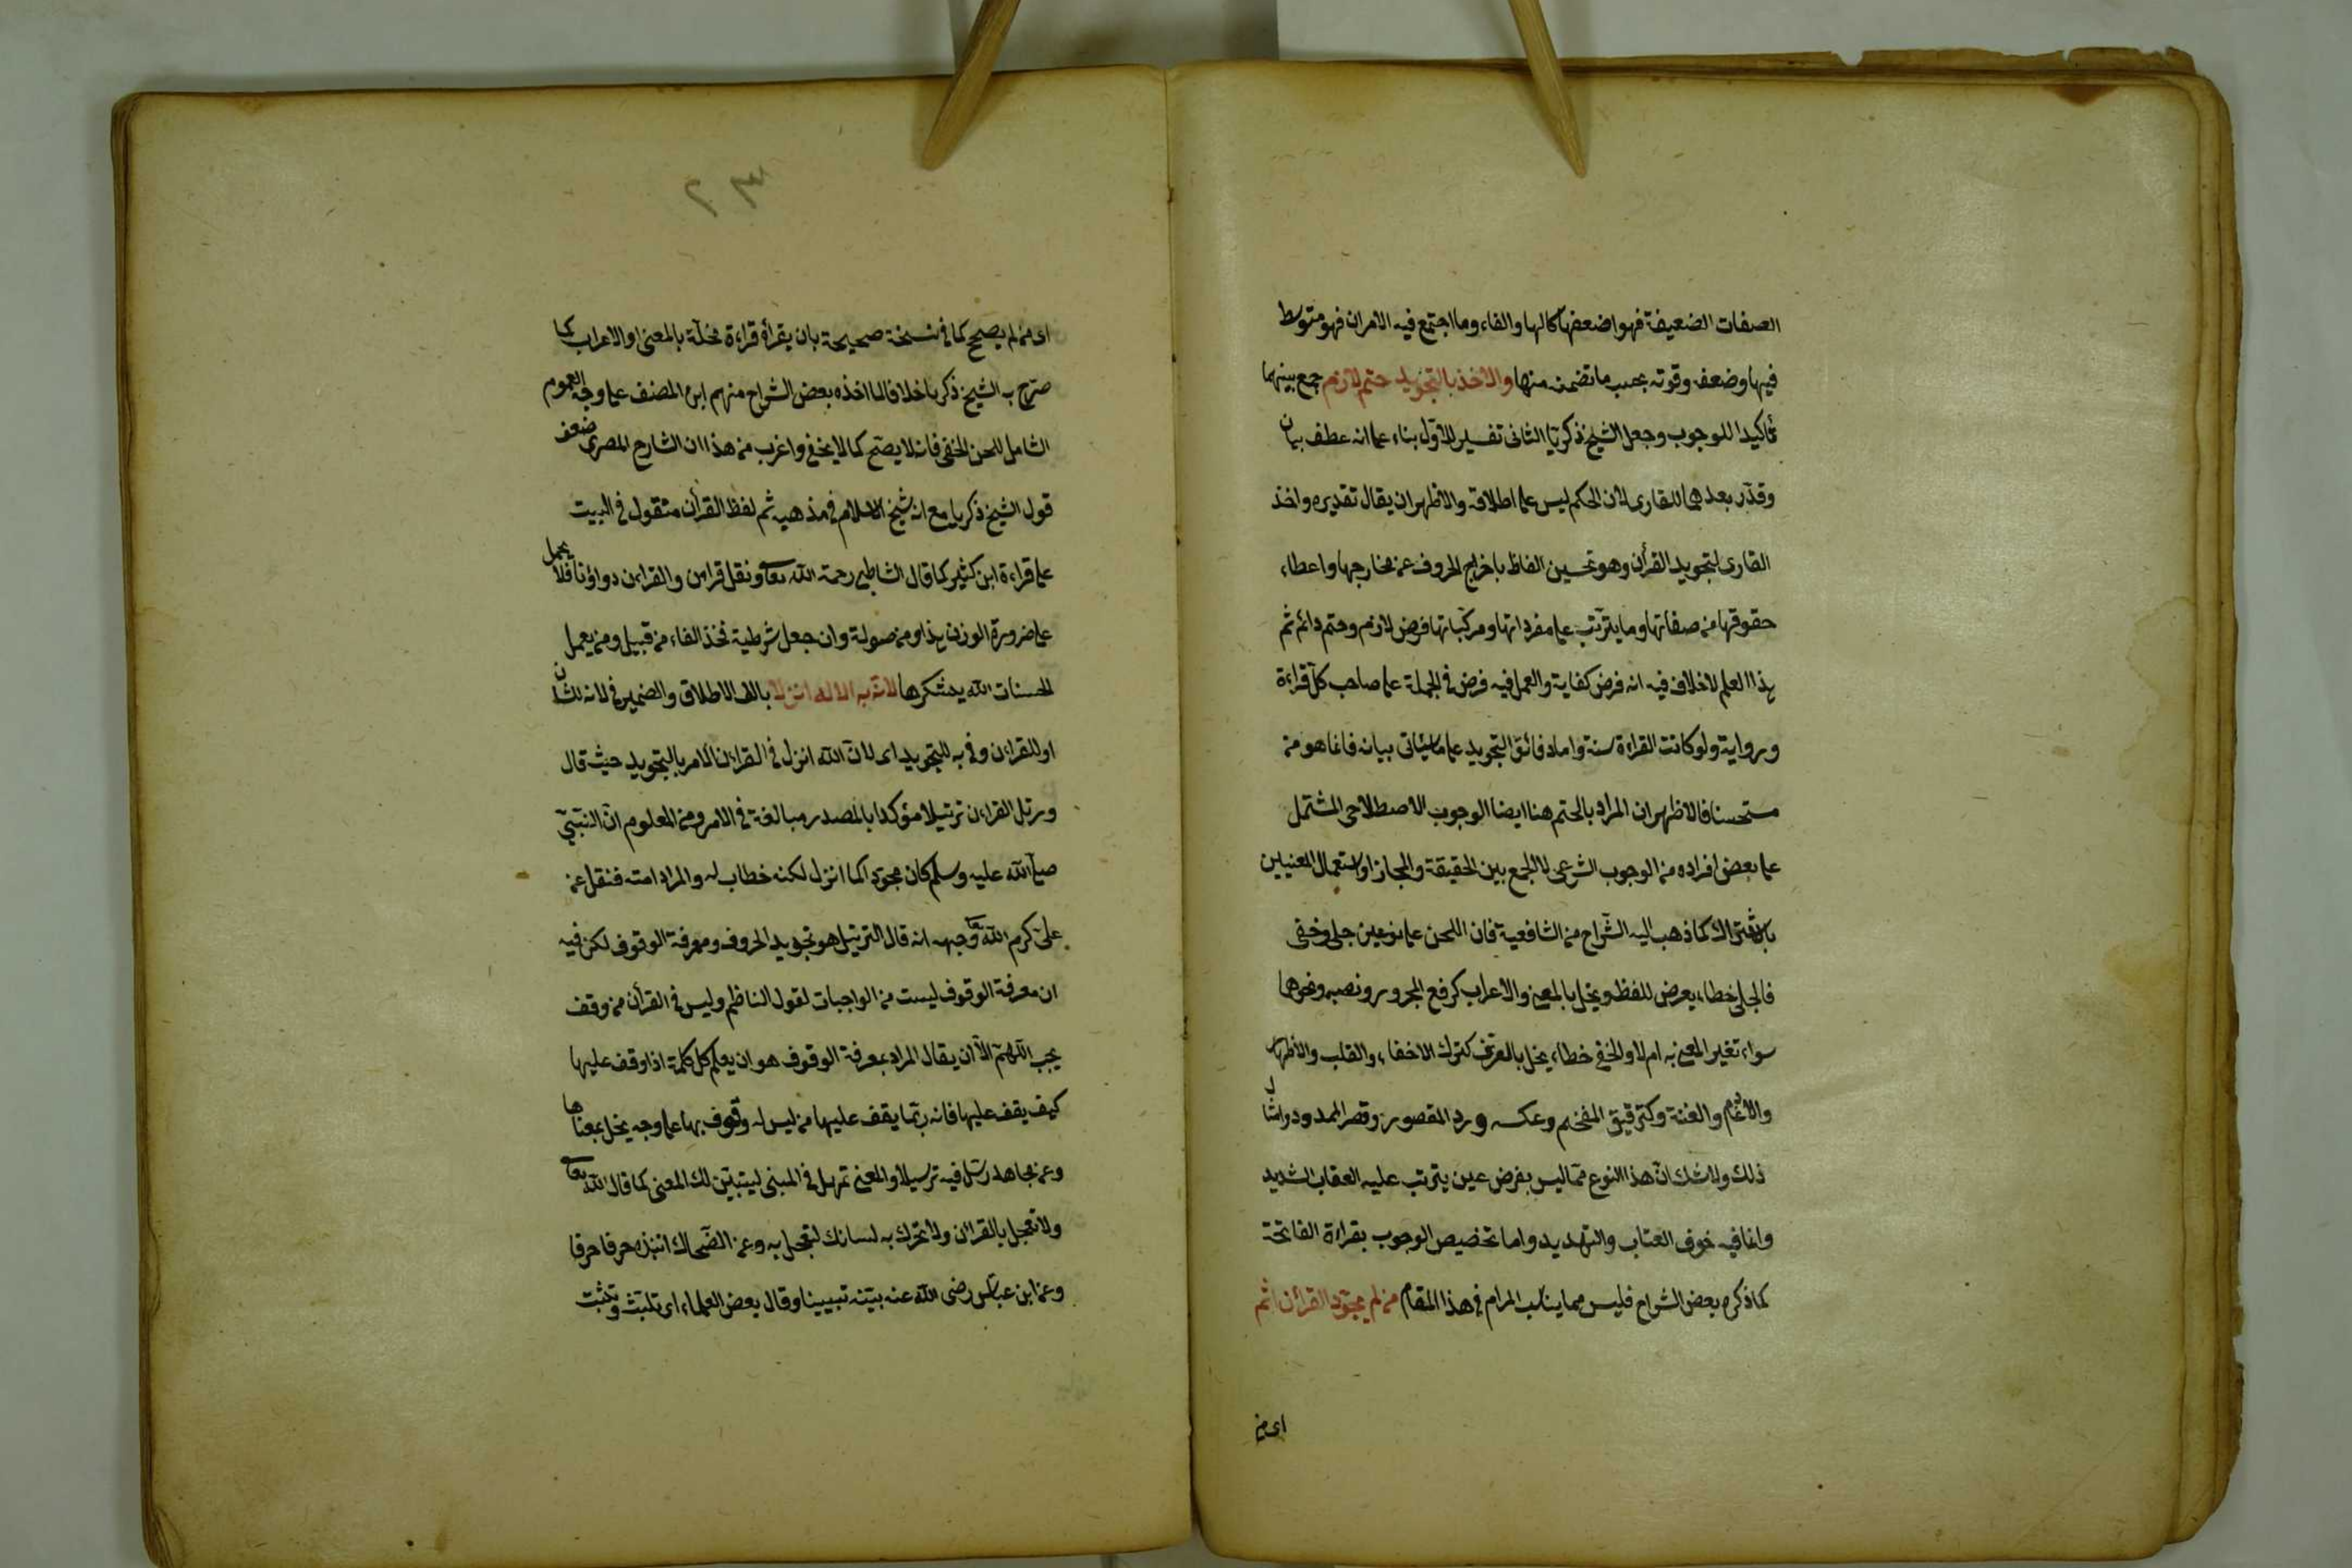 الصفات الضعيفة فهو اضعفها كالها والفاء وما اجتمع فيه الامران فهو متوسط
فيها وضعفه وقوته بحسب ما تضمنه منها والاخذ بالتجويد حتم لازم جمع بينهما
تأكيدا للوجوب وجعل الشيخ ذكريا الثانى تفسير للاول بناء على انه عطف بيان
وقدّر بعدهما للقارى لان الحكم ليس على اطلاقه والاظهر ان يقال تقديره واخذ
القارى لتجويد القرأن وهو تحسين الفاظه باخراج الحروف عن مخارجها واعطاء
حقوقها من صفاتها وما يترتب على مفرداتها ومركباتها فرض لازم وحتم دائم ثم
هذا العلم لاخلاف فيه انه فرض كفاية والعمل فيه فرض فى الجملة على صاحب كل قراءة
ورواية ولو كانت القراءة سنة واما دقائق التجويد على ما سيأتى بيانه فانما هو من
مستحسنا فالاظهر ان المراد بالحتم هنا ايضا الوجوب الاصطلاحى المشتمل
على بعض افراده من الوجوب الشرعى لا الجمع بين الحقيقة والمجاز او استعمال المعنيين
بالاشتراك كما ذهب اليه الشراح من الشافعية فان اللحن على نوعين جلى وخفى
فالجلى خطاء يعرض للفظ ويخل بالمعنى والاعراب كرفع المجرور ونصبه ونحوهما
سواء تغير المعنى به ام لا والخفى خطاء يخل بالعرف كترك الاخفاء والقلب والاظهار
والادغام والغنة وكترقيق المفخم وعكسه ورد المقصور وقصر الممدود وامثال
ذلك ولا شك ان هذا النوع مما ليس بفرض عين يترتب عليه العقاب الشديد
وانما فيه خوف العتاب والتهديد واما تخصيص الوجوب بقراءة الفاتحة
كما ذكره بعض الشراح فليس مما يناسب المرام فى هذا المقام من لم يجوّد القرأن اثم
اى من
٢٣
اى من لم يصحح كما فى نسخة صحيحة بان يقرأه قراءة مخلّة بالمعنى او الاعراب كما
صرّح به الشيخ ذكريا خلافا لما اخذه بعض الشراح منهم ابن المصنف على وجه العموم
الشامل للحن الخفى فانه لا يصح كما لا يخفى واغرب من هذا ان الشارح المصرى ضعف
قول الشيخ ذكريا مع انه شيخ الاسلام فى مذهبه ثم لفظ القرأن منقول فى البيت
على قراءة ابن كثير كما قال الشاطبى رحمة الله تعالى ونقل قران والقراءن دواؤنا فلا يحمل
على ضرورة الوزن هذا ومن موصولة وان جعل شرطية فحذف الفاء من قبيل ومن يعمل
الحسنات الله يشكرها لانه به الاله انزلا بالف الاطلاق والضمير فى لانه للشان
او للقراءن وفى به للتجويد اى لان الله انزل فى القراءن الامر بالتجويد حيث قال
ورتل القراءن ترتيلا مؤكدا بالمصدر مبالغة فى الامر ومن المعلوم ان النبى
صلى الله عليه وسلم كان مجودا كما انزل لكنه خطاب له والمراد امته فنقل عن
على كرم الله تعالى وجهه انه قال الترتيل هو تجويد الحروف ومعرفة الوقوف لكن فيه
ان معرفة الوقوف ليست من الواجبات لقول الناظم وليس فى القرأن من وقف
يجب اللهم الا ان يقال المراد بمعرفة الوقوف هو ان يعلم كل كلمة اذا وقف عليها
كيف يقف عليها فانه ربّما يقف عليها من ليس له وقوف بها على وجه يخل بمعناها
وعن مجاهد رتل فيه ترسيلا والمعنى تمهل فى المبنى ليتبيّن لك المعنى كما قال الله تعالى
ولا تعجل بالقران ولا تحرك به لسانك لتعجل به وعن الضحاك انبذه حرفا حرفا
وعن ابن عباس رضى الله عنه بيّنه تبيينا وقال بعض العلماء اى تلبّث وتثبت